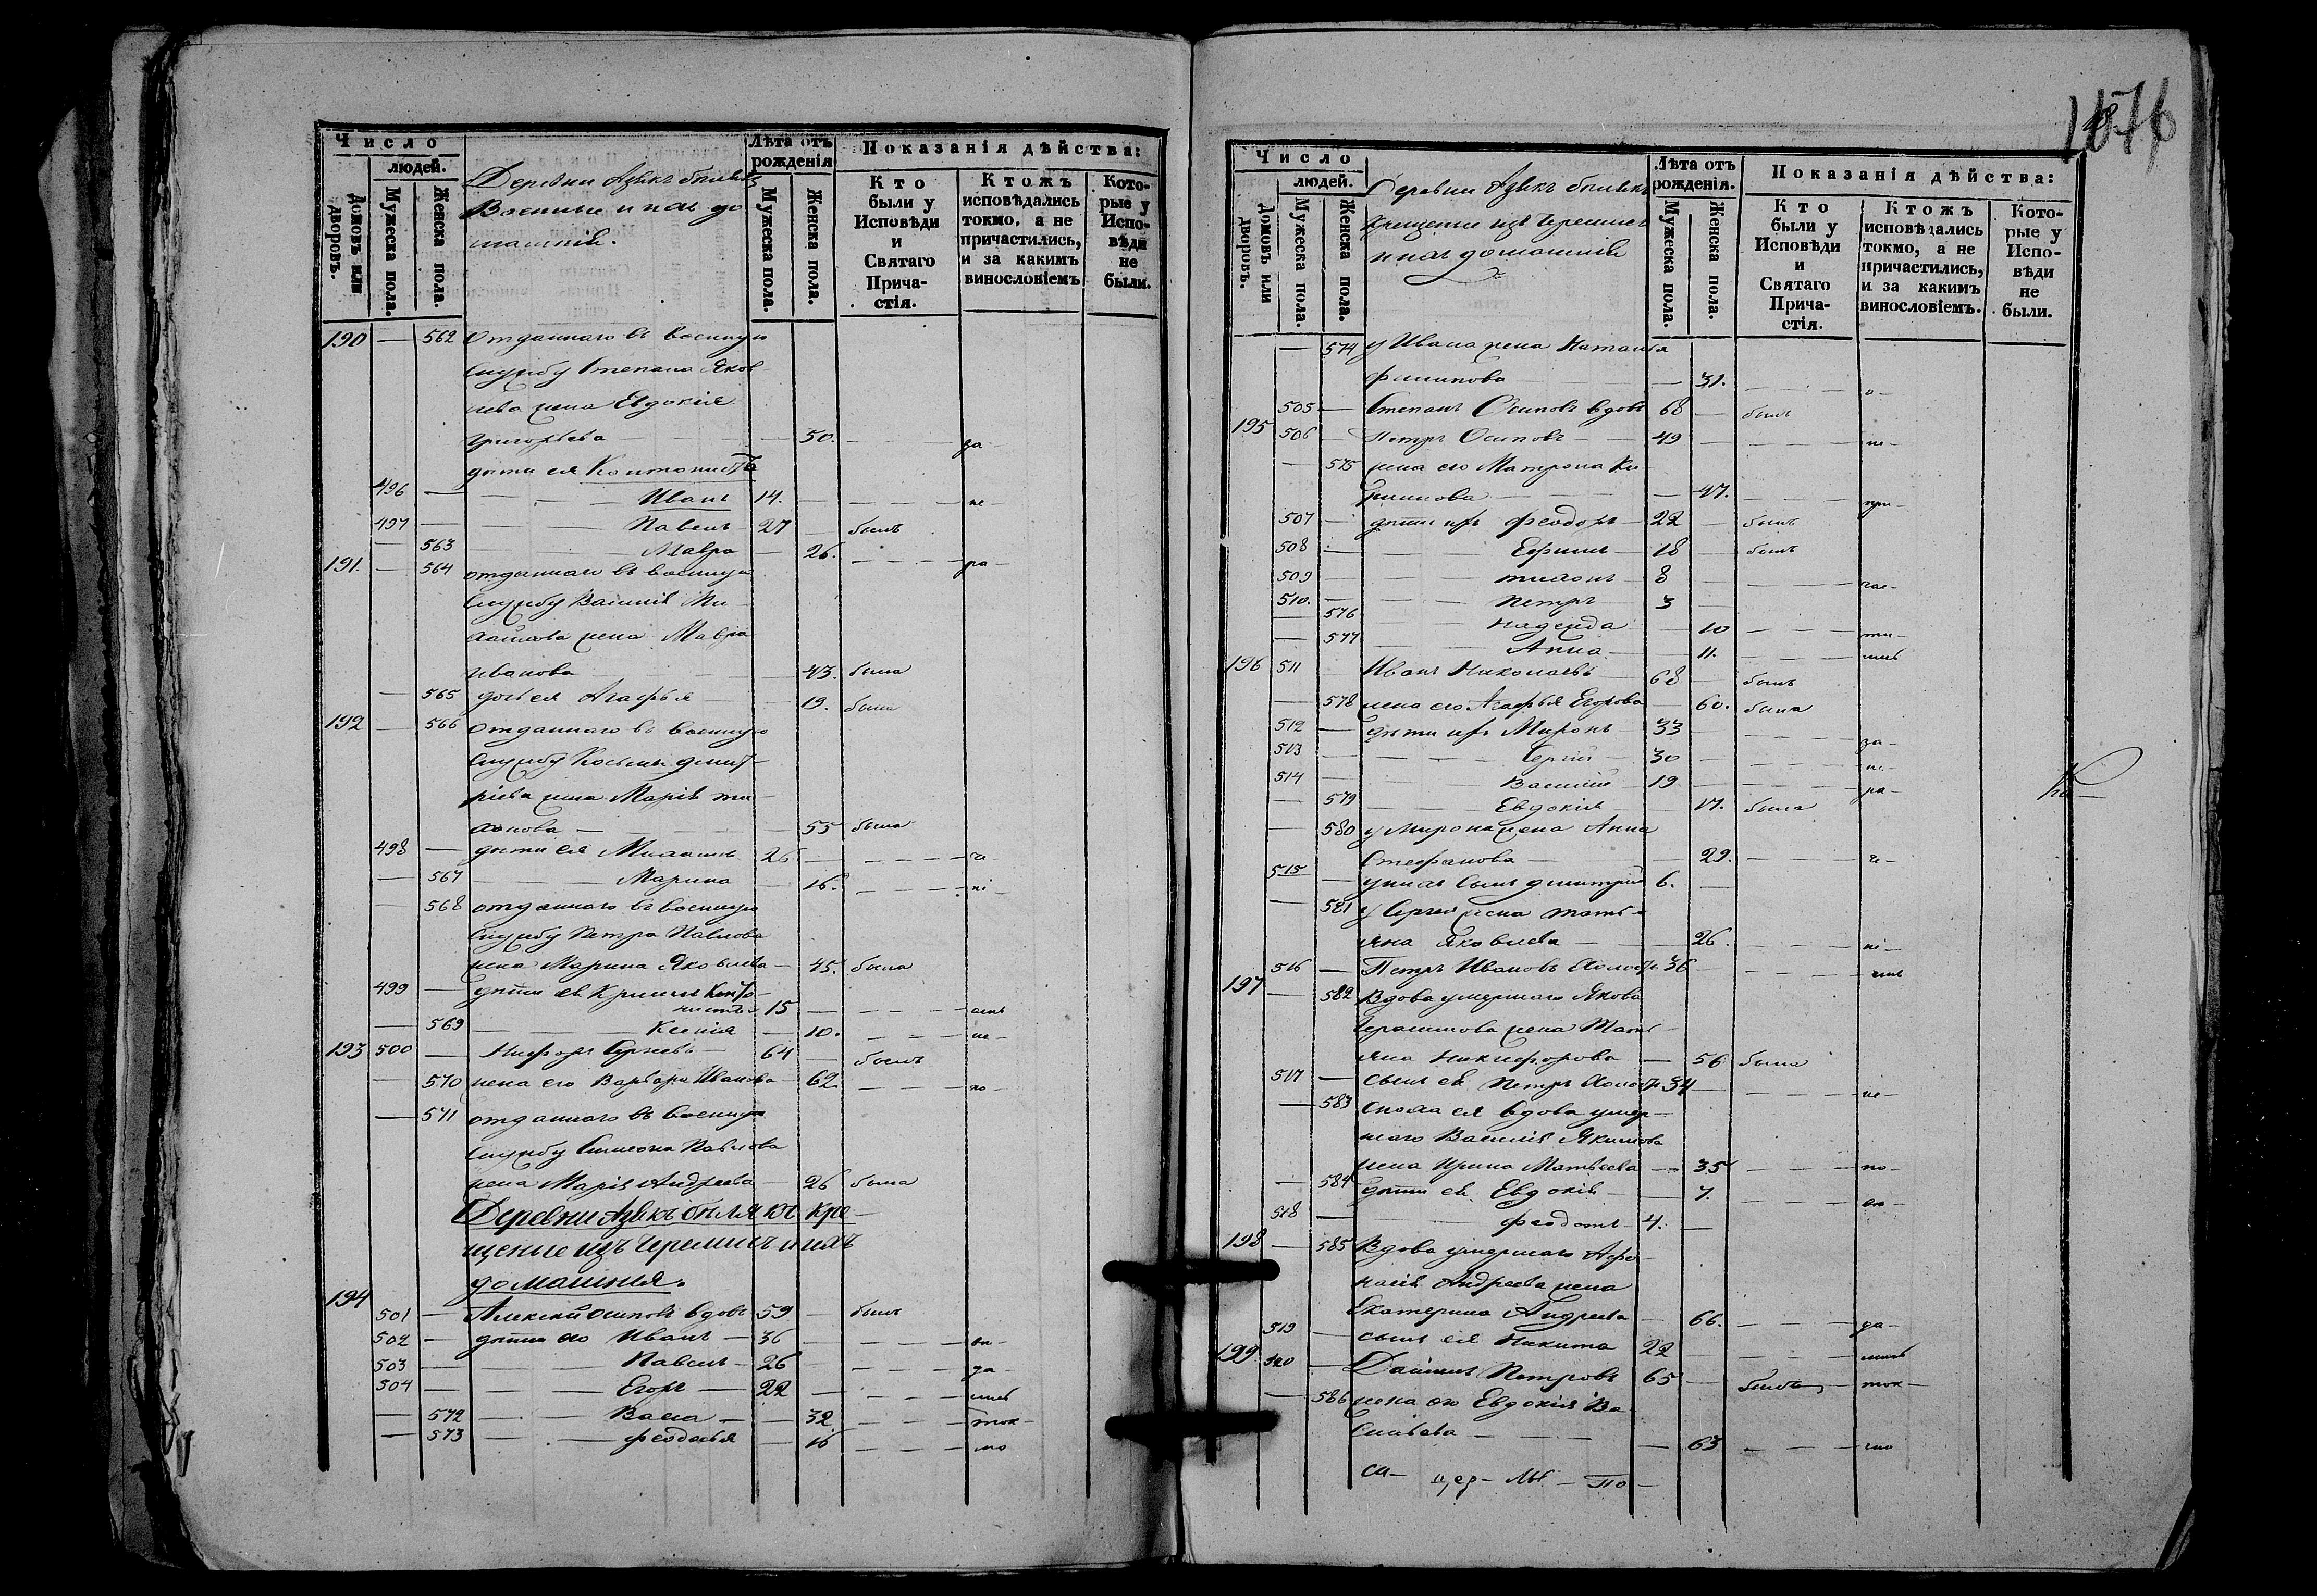 Число
людей.
Домовъ или дворовъ.
Мужеска пола.
Женска пола.
Военные и ихъ до
машнія.
Лѣта отъ рожденія
Мужеска пола.
Женска пола.
Показанія дѣйства:
Кто были у Исповѣди и Святаго Причастія.
Ктожъ исповѣдались токмо, а не причастились, и за какимъ винословіемъ
Которые у Исповѣди не были.
190 — 562 отданнаго въ военную
службу Степана Яков
лева жена Евдокія
Григорьева — 50. — за —
дѣти ея Кантонистъ
496 — Иванъ 14. — не —
497 — Павелъ 27 — былъ
— 563 — Мавра — 26. — ра —
191. — 564 отданнаго въ военную
службу Василія Ми
хайлова жена Мавра
Иванова — 43. была
— 565 дочь ея Агафья — 19. была
192 — 566 отданнаго въ военную
службу Косьмы Дмит
ріева жена Марія Ти
хонова — 55 была
498 — дѣти ея Михаилъ 26 — — че —
— 567 — Марина — 16. — ні —
— 568 отданнаго въ военную
службу Петра Павлова
жена Марина Яковлева — 45. была
499 — дѣти ея Кириллъ Канто
нистъ 15 — — емъ
— 569 — Ксенія — 10. — не —
193 500 — Никифоръ Сергеевъ — 64 — былъ
— 570 жена его Варвара Иванова — 62. — по —
— 571 отданнаго въ военную
службу Симеона Павлова
жена Марія Андреева — 26 была
щеные изъ Черемисъ и ихъ
домашнія.
194
501 — Алексѣй Осиповъ вдовъ 59 — былъ
502 — дѣти его Иванъ — 36 —
503 — Павелъ — 26 — да —
504 — Егоръ — 22 —
— 572 — Васса — 32 — ток —
— 573 — Феодосья — 16 — мо
1076
Число
людей.
Домовъ или дворовъ.
Мужеска пола.
Женска пола.
крещеные изъ Черемисъ
и ихъ домашнія
Лѣта отъ рожденія.
Мужеска пола.
Женска пола.
Показанія дѣйства:
Кто были у Исповѣди и Святаго Причастія.
Ктожъ исповѣдались токмо, а не причастились, и за какимъ винословіемъ.
Которые у Исповѣди не были.
— 574 у Ивана жена Наталья
Филипова — 31. — о —
505 — Степанъ Осиповъ вдовъ 68 — былъ
195 506 — Петръ Осиповъ — 49 — не —
— 575 жена его Матрона Ки
рилова — 47. — при —
507 — дѣти ихъ Феодоръ — 22 — былъ
508 — Ефимъ — 18 — былъ
509 — Тихонъ — 8 — час —
510. — Петръ 3 —
— 576 Надежда — 10 — ти —
— 577 Анна — 11. —
196 511 Иванъ Николаевъ — 68 — былъ
— 578 жена его Агафья Егорова — 60. была
512 — дѣти ихъ Миронъ — 33 — за —
513 — Сергій — 30 — не —
514 — Василій — 19 — ра —
— 579 — Евдокія — 17. была
— 580 у Мирона жена Анна
Стефанова — 29. — че —
515 — у нихъ сынъ Дмитрій 6. —
— 581 у Сергея жена Тать
яна Яковлева — 26. — ні —
516 — Петръ Ивановъ холостъ 36 — емъ
197 — 582 Вдова умершаго Якова
Герасимова жена Тать
яна Никифорова — 56 была
517 — сынъ ея Петръ холостъ 34 — не —
— 583 сноха ея вдова умер
шаго Василія Якимова
жена Ирина Матвеева — 35 — по —
— 584 дѣти ея Евдокія — 7. —
518 — Феодотъ — 4. —
198 — 585 Вдова умершаго Афа
насія Андреева жена
Екатерина Андреева — 66. — да —
519 — сынъ ея Никита 22 —
199. 520 — Даніилъ Петровъ 65 — былъ — ток —
— 586 жена его Евдокія Ва
сильева — 63 — мо